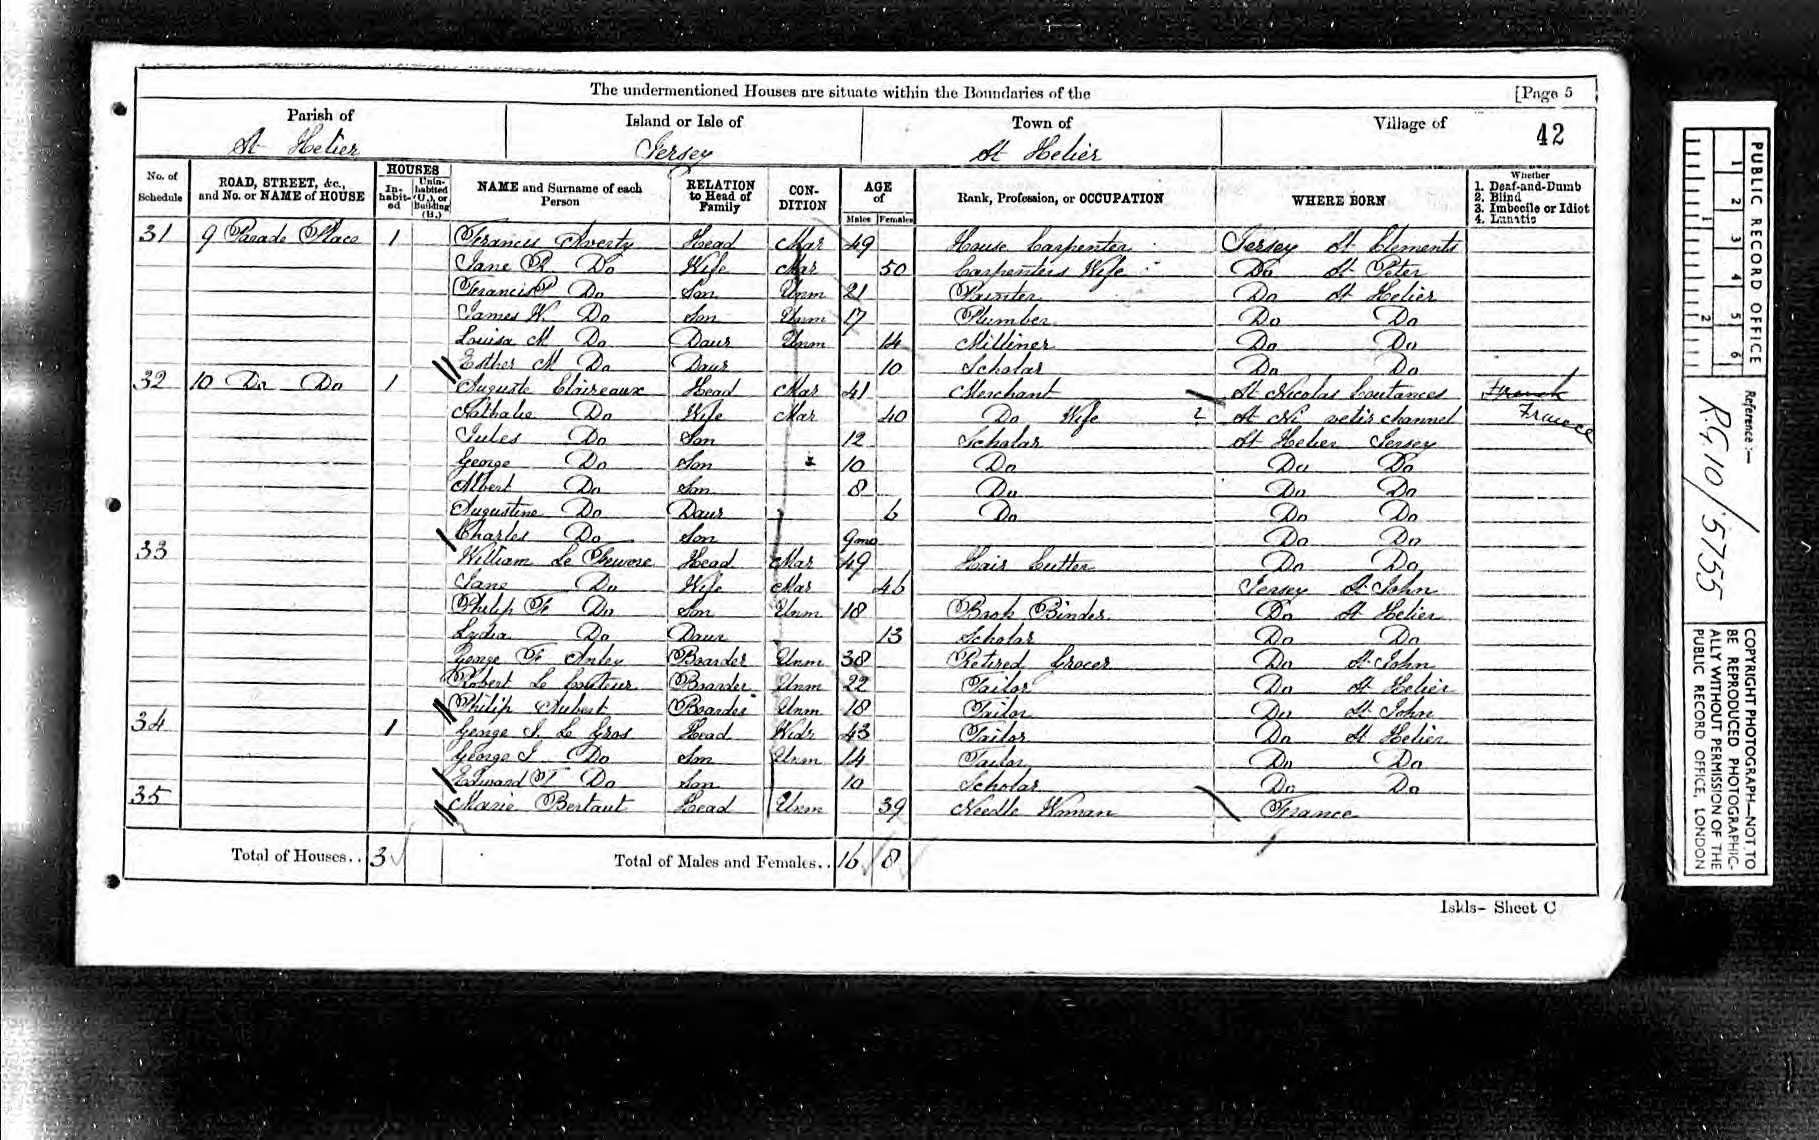 The undermentioned Houses are situate within the Boundaries of the [Page 5
Parish of Island or Isle of Town of Village of 42
St Helier Jersey St Helier
No. of Schedule ROAD, STREET, &c., and No. or NAME of HOUSE HOUSES In-habit-ed Unin-habited (U.), or Building (B.) NAME and Surname of each Person RELATION to Head of Family CON-DITION AGE of Males Females Rank, Profession, or OCCUPATION WHERE BORN Whether 1. Deaf-and-Dumb 2. Blind 3. Imbecile or Idiot 4. Lunatic
31 9 Parade Place 1 Francis Averty Head Mar 49 House Carpenter Jersey St Clements
Jane R Do Wife Mar 50 Carpenters Wife Do St Peter
Francis Do Son Unm 21 Painter Do St Helier
James W Do Son Unm 17 Plumber Do Do
Louisa M Do Daur Unm 14 Milliner Do Do
Esther M Do Daur 10 Scholar Do Do
32 10 Do Do 1 Auguste Claireaux Head Mar 41 Merchant St Nicolas Coutances French
Nathalie Do Wife Mar 40 Do Wife ? St channel France
Jules Do Son 12 Scholar St Helier Jersey
George Do Son 10 Do Do Do
Albert Do Son 8 Do Do Do
Augustine Do Daur 6 Do Do Do
Charles Do Son 9mo Do Do
33 William Le Head Mar 49 Hair Cutter Do Do
Jane Do Wife Mar 46 Jersey St John
Philip F Do Son Unm 18 Book Binder Do St Helier
Lydia Do Daur 13 Scholar Do Do
George F Anley Boarder Unm 38 Retired Grocer Do St John
Robert Le Couteur Boarder Unm 22 Tailor Do St Helier
Philip Aubert Boarder Unm 18 Tailor Do St John
34 1 George J. Le Gros Head Widr 43 Tailor Do St Helier
George J Do Son Unm 14 Tailor Do Do
Edward F Do Son 10 Scholar Do Do
35 Marie Bertaut Head Unm 39 Needle Woman France
Total of Houses.. 3 Total of Males and Females.. 16 8
Islds- Sheet C
PUBLIC RECORD OFFICE
1 2 3 4 5 6
1 2
Reference:-
RG 10/5755
COPYRIGHT PHOTOGRAPH—NOT TO
BE REPRODUCED PHOTOGRAPHIC-
ALLY WITHOUT PERMISSION OF THE
PUBLIC RECORD OFFICE, LONDON